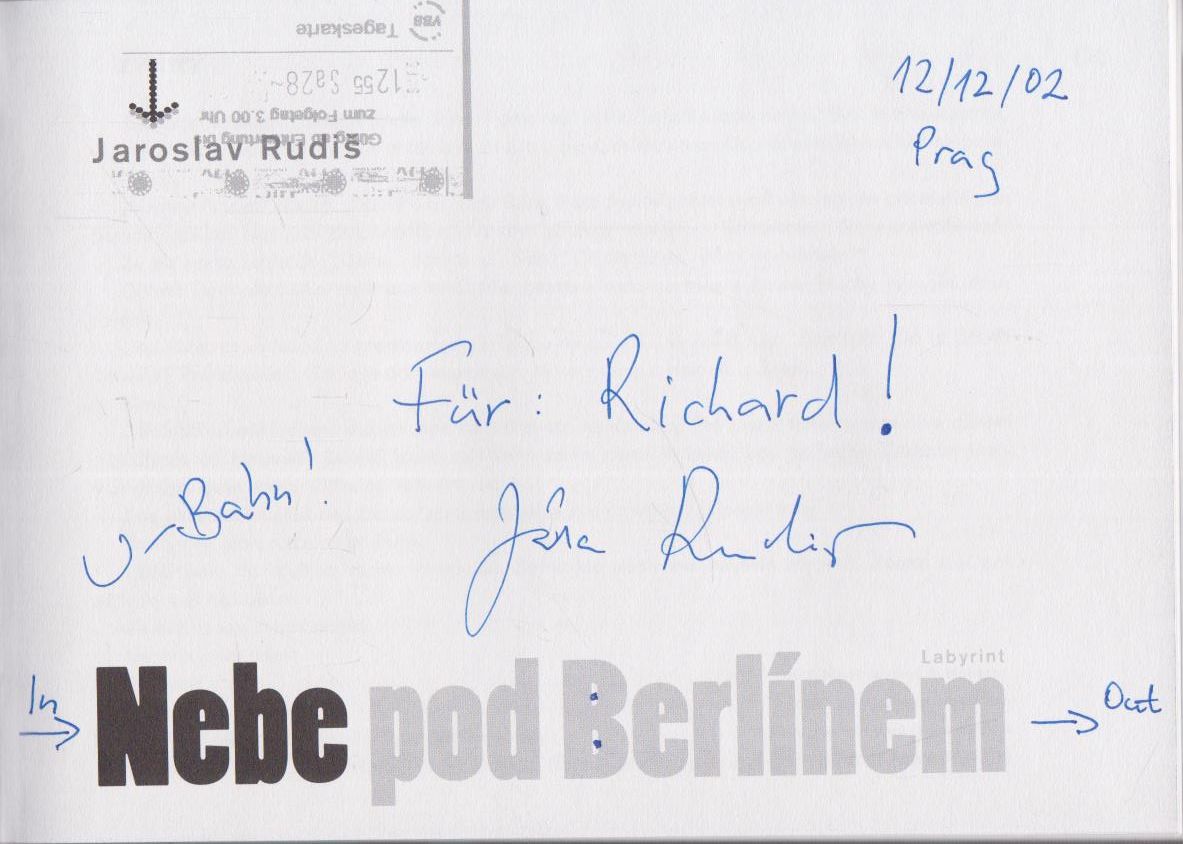 VBB
Tageskarte
1255 Sa28~
zum Folgetag 3.00 Uhr
Gültig ab Entwertung bis
Jaroslav Rudiš
12/12/02
Prag
Für: Richard!
U-Bahn!
Jára Rudiš
Labyrint
In
Nebe pod Berlínem
Out